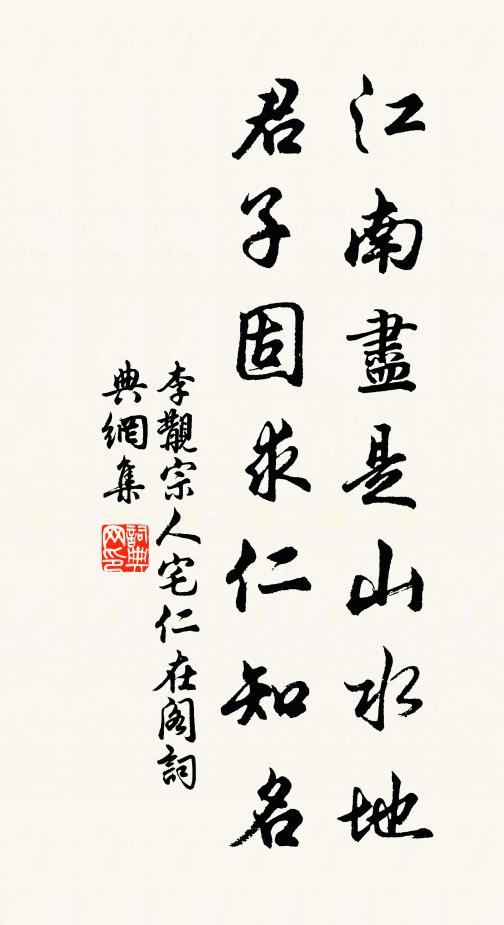 江南盡是山水地
君子固求仁知名
李覯宗人宅仁在閣詞
典網集
詞典
网印